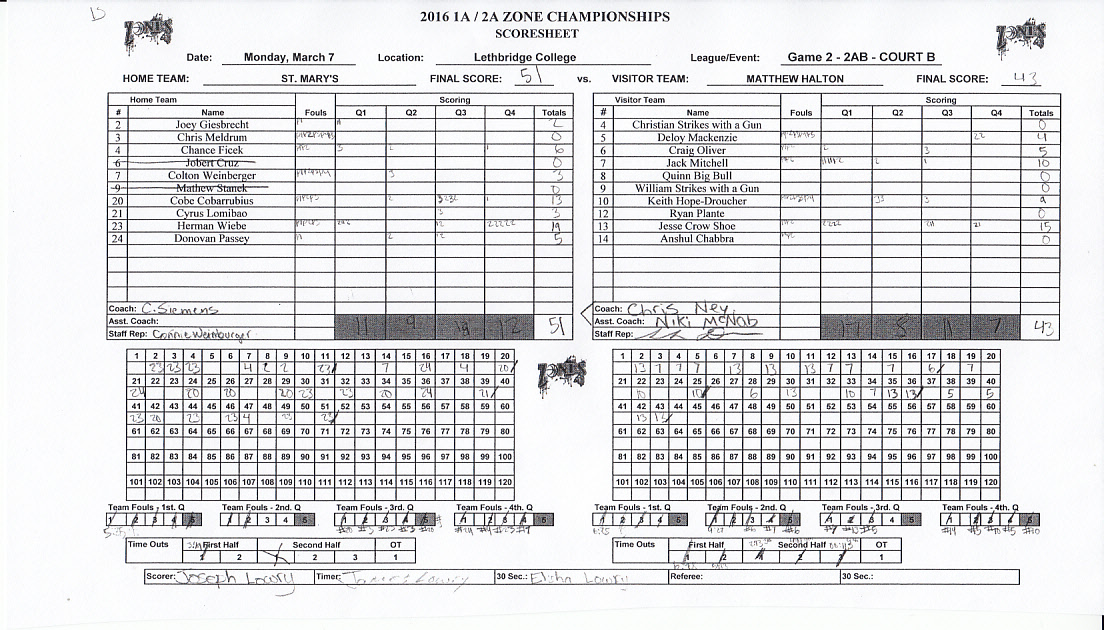 2016 1A / 2A ZONE CHAMPIONSHIPS
SCORESHEET
ZONES
ZONES
Date: Monday, March 7 Location: Lethbridge College League/Event: Game 2 - 2AB - COURT B
HOME TEAM: ST. MARY'S FINAL SCORE: 51 vs. VISITOR TEAM: MATTHEW HALTON FINAL SCORE: 43
Home Team Scoring
# Name Fouls Q1 Q2 Q3 Q4 Totals
2 Joey Giesbrecht 2
3 Chris Meldrum 0
4 Chance Ficek 3 2 1 6
6 Jobert Cruz 0
7 Colton Weinberger 3 3
9 Mathew Stanek 0
20 Cobe Cobarrubius 2 3232 1 13
21 Cyrus Lomibao 3 3
23 Herman Wiebe 12 22222 19
24 Donovan Passey 2 12 5
Coach: C. Siemens
Asst. Coach: 11 9 19 12 51
Staff Rep: Connie Weinburger
Visitor Team Scoring
# Name Fouls Q1 Q2 Q3 Q4 Totals
4 Christian Strikes with a Gun 0
5 Deloy Mackenzie 22 4
6 Craig Oliver 2 3 5
7 Jack Mitchell 2 1 10
8 Quinn Big Bull 0
9 William Strikes with a Gun 0
10 Keith Hope-Droucher 33 3 9
12 Ryan Plante 0
13 Jesse Crow Shoe 2222 21 15
14 Anshul Chabbra 0
Coach: Chris Ney
Asst. Coach: Niki McNab 17 8 11 7 43
Staff Rep:
1 2 3 4 5 6 7 8 9 10 11 12 13 14 15 16 17 18 19 20
23 23 23 4 2 2 23 7 24 4 20
21 22 23 24 25 26 27 28 29 30 31 32 33 34 35 36 37 38 39 40
24 20 20 20 23 23 20 24 21
41 42 43 44 45 46 47 48 49 50 51 52 53 54 55 56 57 58 59 60
23 20 23 23 4 23 23
61 62 63 64 65 66 67 68 69 70 71 72 73 74 75 76 77 78 79 80
81 82 83 84 85 86 87 88 89 90 91 92 93 94 95 96 97 98 99 100
101 102 103 104 105 106 107 108 109 110 111 112 113 114 115 116 117 118 119 120
ZONES
1 2 3 4 5 6 7 8 9 10 11 12 13 14 15 16 17 18 19 20
13 7 7 7 13 13 13 7 7 7 6 7
21 22 23 24 25 26 27 28 29 30 31 32 33 34 35 36 37 38 39 40
10 10 6 13 10 7 13 13 5 5
41 42 43 44 45 46 47 48 49 50 51 52 53 54 55 56 57 58 59 60
13 13
61 62 63 64 65 66 67 68 69 70 71 72 73 74 75 76 77 78 79 80
81 82 83 84 85 86 87 88 89 90 91 92 93 94 95 96 97 98 99 100
101 102 103 104 105 106 107 108 109 110 111 112 113 114 115 116 117 118 119 120
Team Fouls - 1st. Q Team Fouls - 2nd. Q Team Fouls - 3rd. Q Team Fouls - 4th. Q
1 2 3 4 5 1 2 3 4 5 1 2 3 4 5 1 2 3 4 5
Time Outs First Half Second Half OT
1 2 1 2 3 1
Team Fouls - 1st. Q Team Fouls - 2nd. Q Team Fouls - 3rd. Q Team Fouls - 4th. Q
1 2 3 4 5 1 2 3 4 5 1 2 3 4 5 1 2 3 4 5
Time Outs First Half Second Half OT
1 2 1 2 3 1
Scorer: Joseph Lowry Timer: James Lowry 30 Sec.: Elisha Lowry Referee: 30 Sec.: